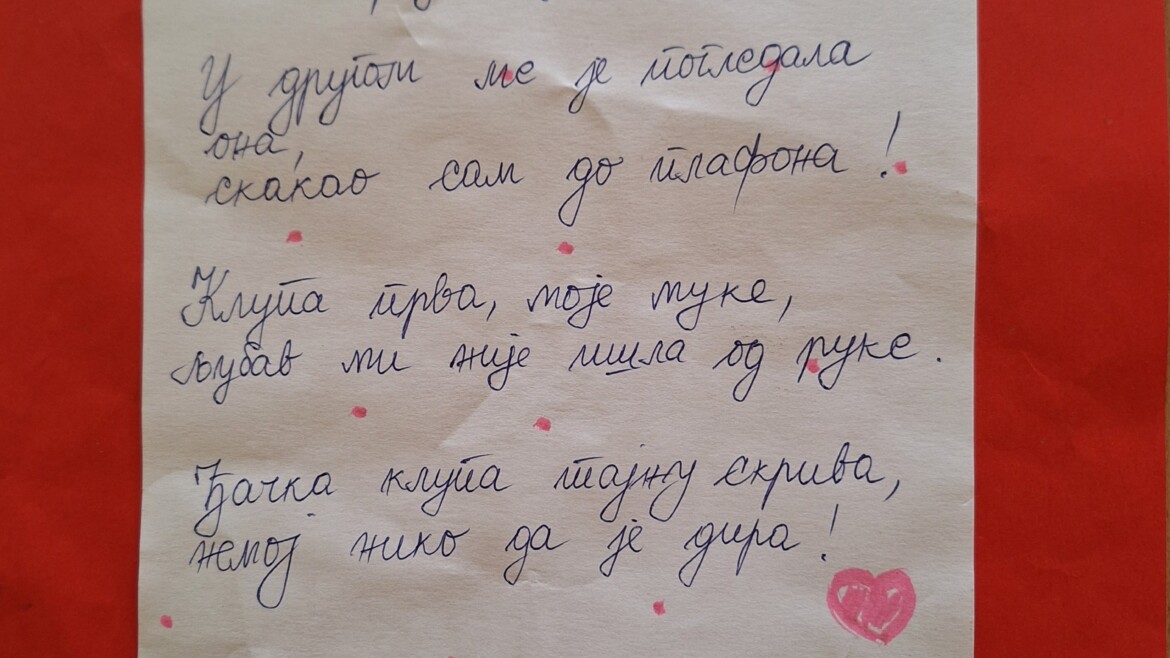 У другој ме је погледала
она,
скакао сам до плафона!
Клупа прва, моје муке,
љубав ми није ишла од руке.
Ђачка клупа тајну скрива,
немој нико да је дира!